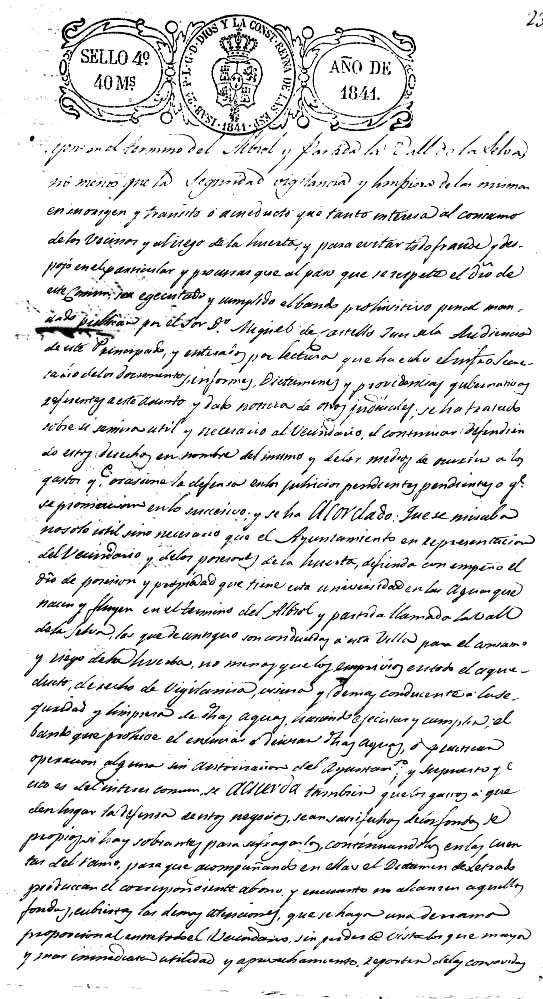 23
SELLO 4º
40 Ms
ISAB. 2ª P. L. G. D. DIOS Y LA CONST. REINA DE LAS ESP.
1841
AÑO DE
1841.
en el termino del Albiol y Partida la Vall de la Selva,
no menos que la Seguridad vigilancia y limpieza de las mismas
en su origen y transito ó acueducto que tanto interesa al consumo
de los Vecinos y al riego de la huerta, y para evitar todo fraude y des-
pojo en el particular y procurar que al paso que se respete el dro de
este Comun, sea egecutado y cumplido el bando prohivitivo penal man-
dado publicar por el Sor Dn Miguel de Castells Juez de la Audiencia
de este Principado, y enterados por lectura que ha echo el infro Secre-
tario de los documentos, informes, Dictamenes y providencias gubernativas
referentes a este asunto y dado noticia de otros judiciales, se ha tratado
sobre si seria util y necesario al Vecindario, el continuar defendien
do estos derechos en nombre del mismo y de los medios de ocurrir a los
gastos y qe ocasione la defensa en los juhicios pendientes pendientes o qe
se promovieren en lo succesivo: y se ha Acordado: Que se miraba
no solo util sino necesario que el Ayuntamiento en representacion
del Vecindario y de los poseores de la huerta, defienda con empeño el
dro de posesion y propiedad que tiene esta universidad en las Aguas que
nacen y fluyen en el termino del Albiol y partida llamada la Vall
de la Selva, las que de antiguo son conducidas a esta Villa para el consumo
y riego de la huerta, no menos que los emprivios en todo el aque-
ducto, derecho de Vigilancia, y demas conducente a la se-
guridad y limpieza de dhas aguas, haciendo ejecutar y cumplir, el
bando que prohive el ensuciar ó divertir dhas aguas, ó practicar
operacion alguna sin autorizacion del Ayuntamto; y supuesto qe
esto es del interes comun, se acuerda tambien que los gastos á que
den lugar la defensa de estos negocios, sean satisfechos de los fondos de
propios, si hay sobrantes para sufragarlos, continuandolos en las cuen-
tas del ramo, para que acompañando en ellas el Dictamen de Letrado
produzcan el correspondiente abono, y en cuanto no alcancen aquellos
fondos, cubiertas las demas atenciones, que se haga una derrama
proporcional entre todo el Vecindario, sin perder de vista los que mayor
y mas inmediata utilidad y aprovechamiento, reporten de las consavidas